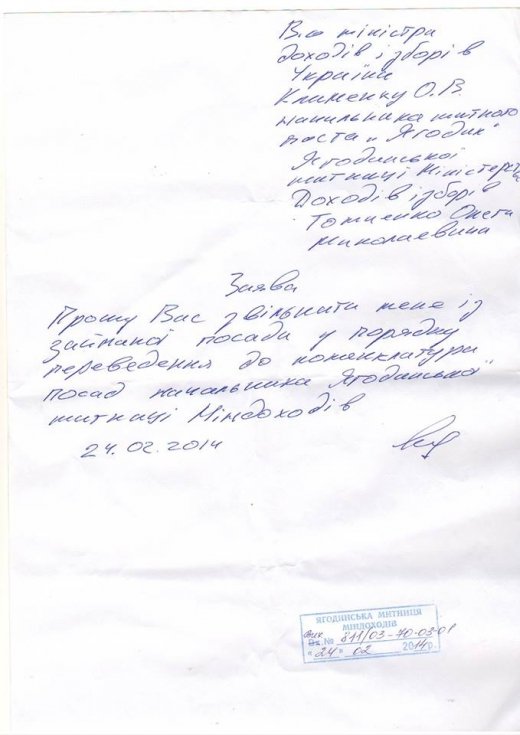 В.о міністра
доходів і зборів
України
Клименку О.В.
начальника митного
поста „Ягодин"
Ягодинської
митниці Міністерст
Доходів і зборів
Томченко Олега
Миколаевича
Заява
Прошу Вас звільнити мене із
займаної посади у порядку
переведення до номенклатури
посад начальника Ягодинської"
митниці Міндоходів
24.02.2014
ЯГОДИНСЬКА МИТНИЦЯ
МІНДОХОДІВ
Вх. № 811/03-70-03-01
"24" 02 2014р.